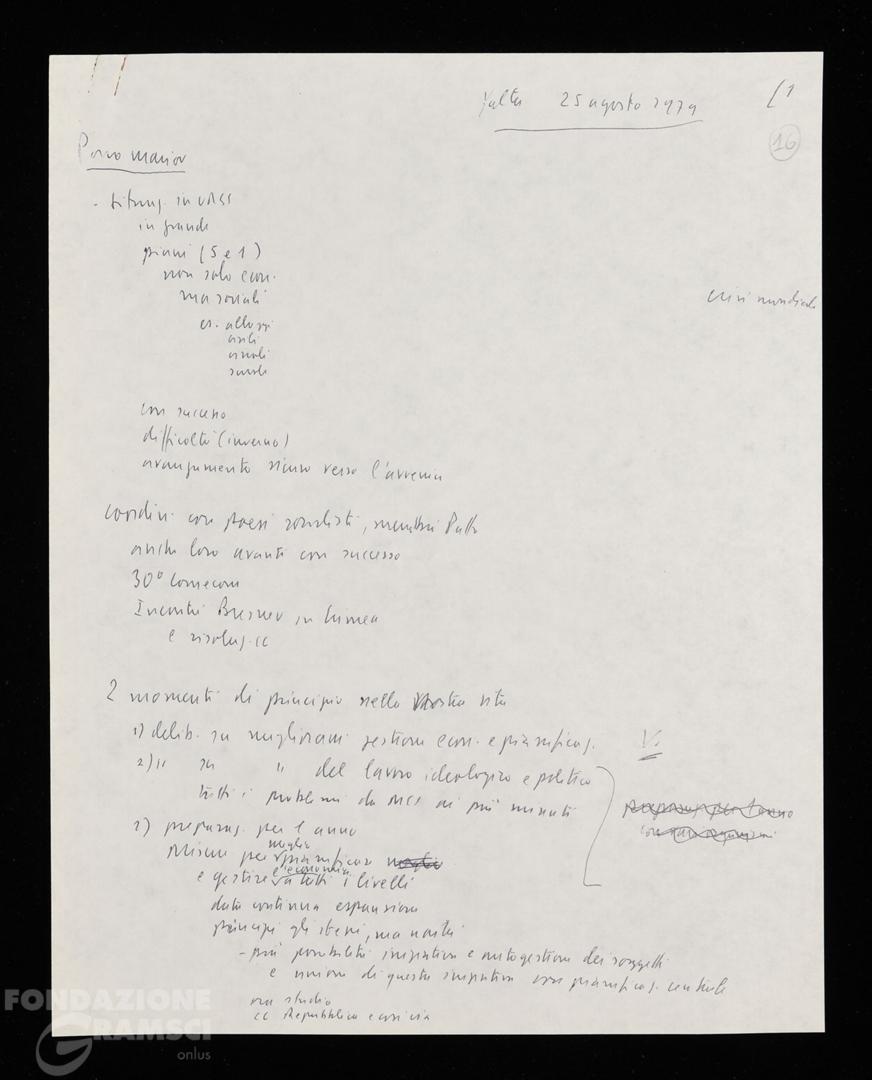 Yalta 25 agosto 1979
[1
16
- situaz. in URSS
in grande
piani (5 e 1)
non solo econ.
ma sociali
es. alloggi
asili
scuole
crisi mondiale
con successo
difficoltà (inverno)
avanzamento sicuro verso l'avvenire
coordin. con paesi socialisti, membri Patto
anche loro avanti con successo
30° Comecon
Incontri Breznev in Crimea
e risoluz. CC
2 momenti di principio nella nostra vita
1) delib. su miglioram. gestione econ. e pianificaz.
V.
2) " su " del lavoro ideologico e politico
tutti i problemi da più minuti
1) preparaz. per l'anno
Misure per meglio pianificare
e gestire l'economia a tutti i livelli
data continua espansione
principi gli stessi, ma novità
- più possibilità iniziativa e autogestione dei soggetti
e unione di questa iniziativa con pianificaz. centrale
ora studio
CC Repubblica e così via
FONDAZIONE
GRAMSCI
onlus